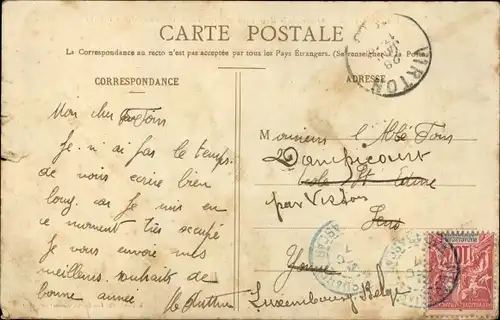 CARTE POSTALE
La Correspondance au recto n'est pas acceptée par tous les Pays Étrangers. (Se renseigner à la Poste)
CORRESPONDANCE
ADRESSE
VIRTON
Mon cher
Je n'ai pas le temps
de vous écrire bien
long, car je suis en
ce moment très occupé
Je vous envoie mes
meilleurs souhaits de
bonne année
M
Monsieur l'Abbé
Dampicourt
par Virton
Sens
Yonne
Luxembourg Belge